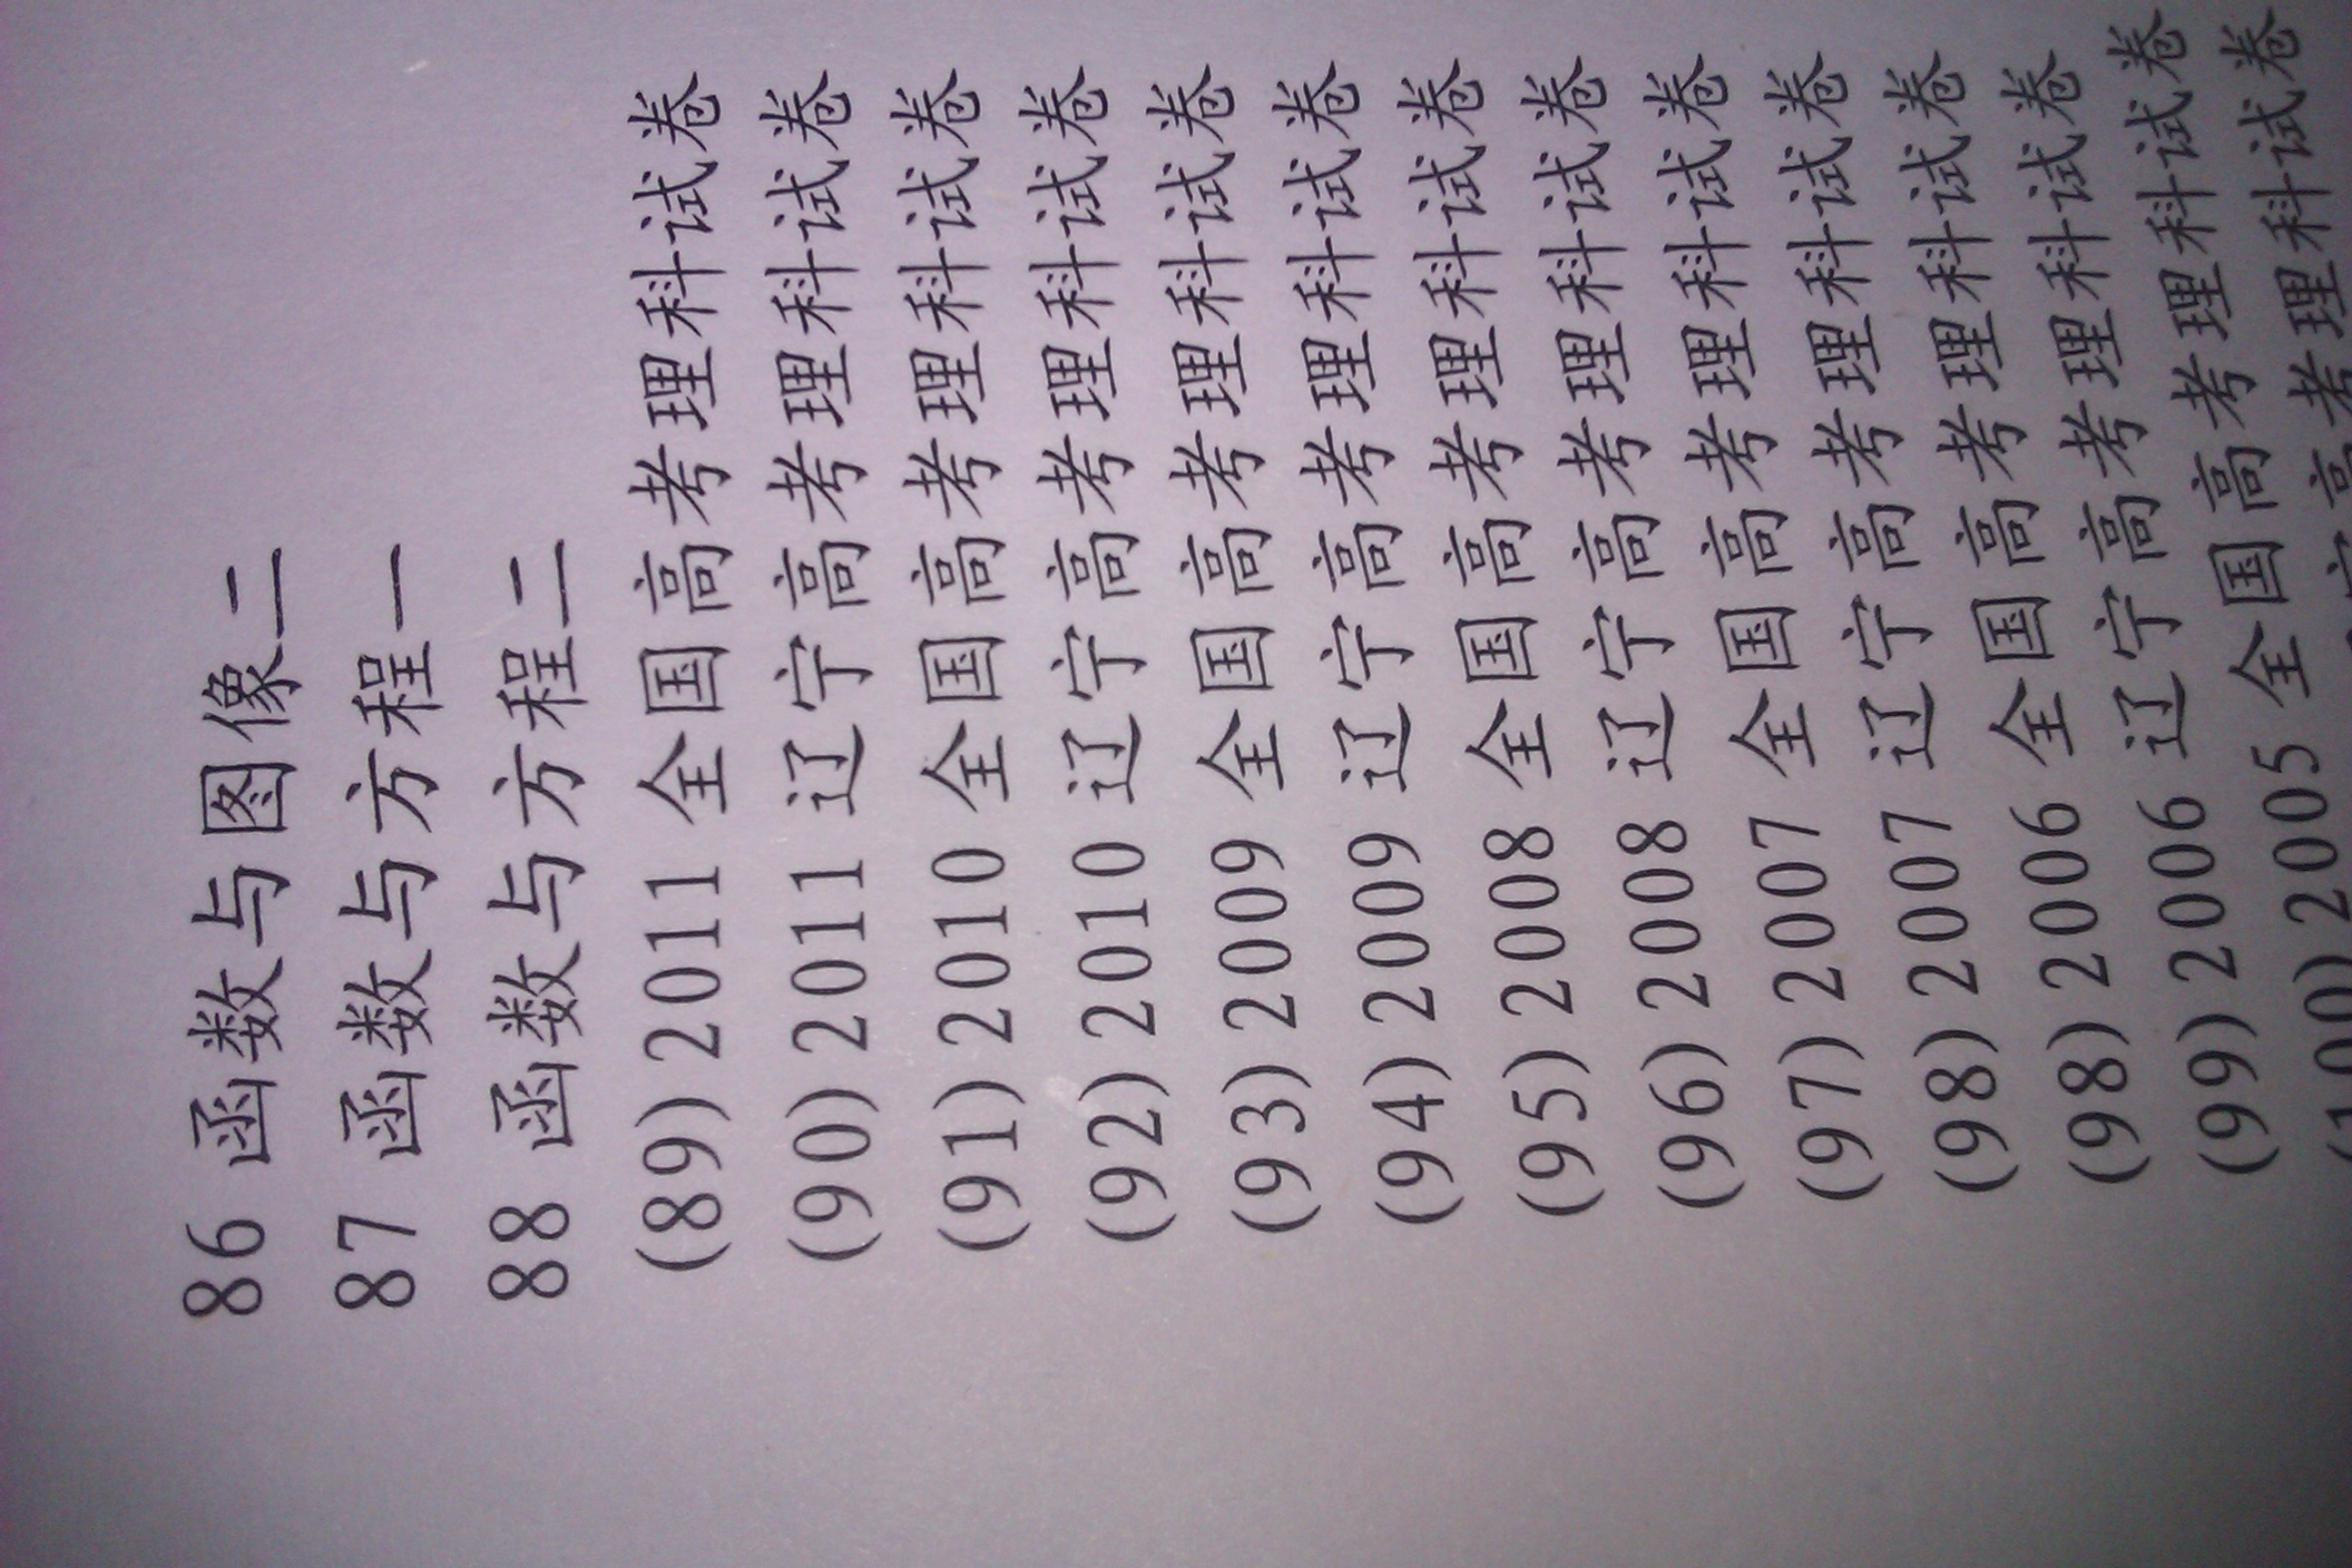 86 函数与图像二
87 函数与方程一
88 函数与方程二
(89)2011 全国高考理科试卷
(90)2011 辽宁高考理科试卷
(91)2010 全国高考理科试卷
(92)2010 辽宁高考理科试卷
(93)2009 全国高考理科试卷
(94)2009 辽宁高考理科试卷
(95)2008 全国高考理科试卷
(96)2008 辽宁高考理科试卷
(97)2007 全国高考理科试卷
(98)2007 辽宁高考理科试卷
(98)2006 全国高考理科试卷
(99)2006 辽宁高考理科试卷
(100)2005 全国高考理科试卷
高考理科试卷